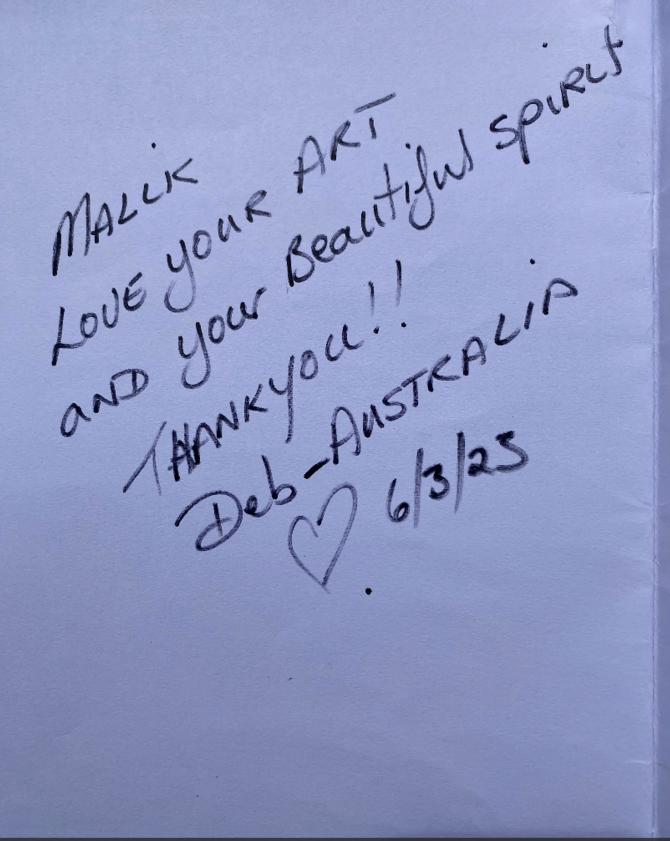 MALiK
LOVE YOUR ART
AND your Beautiful SPiRit
THANKYOU!!
Deb-AUSTRALiA
♡ 6/3/25